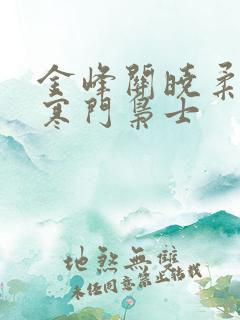 金峰關曉柔
寒門梟士
地煞無雙
未經同意禁止轉載